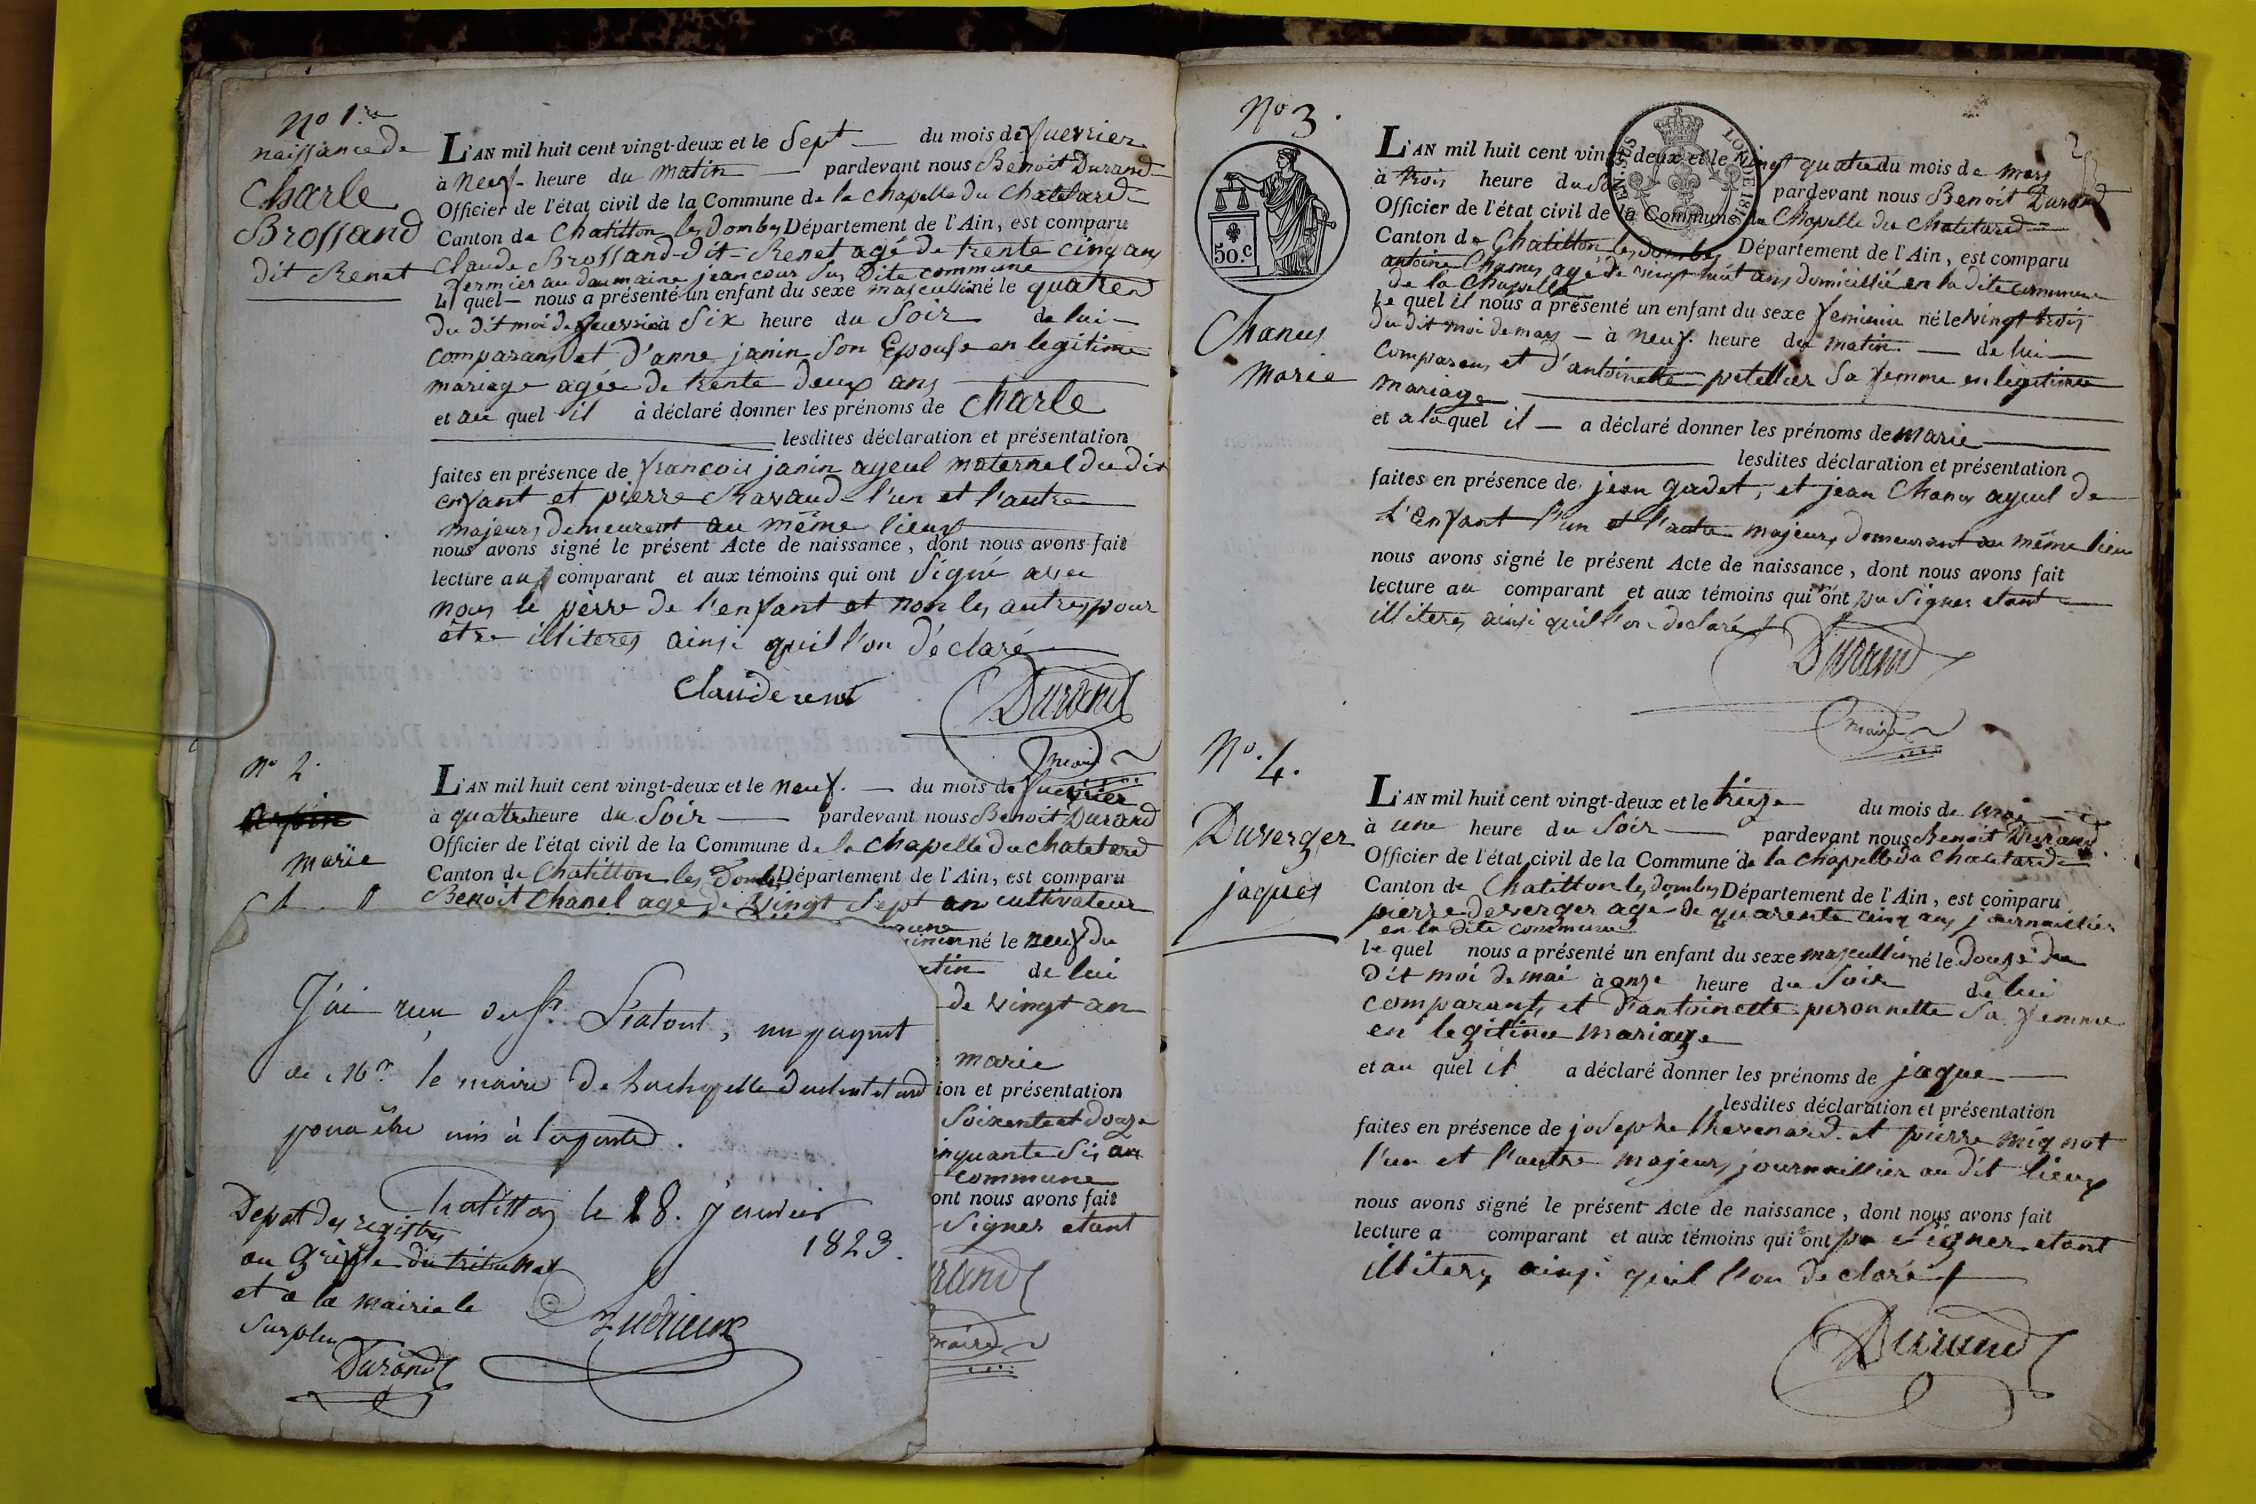 No 1.re
naissance de
Charle
Brossand
dit Renet
L'AN mil huit cent vingt-deux et le Sept du mois de fuevrier
à Neuf heure du matin pardevant nous Benoit Durand
Officier de l'état civil de la Commune de la Chapelle du Chatelard
Canton de Chatillon les Dombes Département de l'Ain, est comparu
Claude Brossand-dit-Renet agé de trente cinq ans
fermier au doumaine jean cour Sus Dite commune
le quel nous a présenté un enfant du sexe masculin né le quatre
du dit moi de fuevrier à Six heure du Soir de lui
comparans et d'anne janin Son Epouse en legitime
mariage agée de trente deux ans
et au quel il à déclaré donner les prénoms de Charle
lesdites déclaration et présentation
faites en présence de francois janin ayeul maternel du dit
enfant et pierre Ravaud l'un et l'autre
majeurs demeurent au même lieux
nous avons signé le présent Acte de naissance, dont nous avons fait
lecture aux comparant et aux témoins qui ont Signé avec
nous le perre de l'enfant et non les autres pour
être illiteres ainsi quil l'on déclaré
Claude renet
Durand
maire
No 2.
marie
L'AN mil huit cent vingt-deux et le neuf. du mois de fuevrier
à quattre heure du Soir pardevant nous Benoit Durand
Officier de l'état civil de la Commune de la Chapelle du Chatelard
Canton de Chatillon les Dombes Département de l'Ain, est comparu
Benoit Chanel agé de vingt Sept an cultivateur
né le neuf du
de lui
de vingt an
marie
ion et présentation
Soixente et douze
inquante Six an
commune
ont nous avons fait
Signer etant
urand
maire
J'ai reçu du Sr. , un paquet
de Mr. le maire de Lachapelle du chatelard
pour être mis à la poste.
Chatillon le 18. janvier
1823.
Depot des registres
au Greffe du tribunal
et à la mairie le
Surplus
Durand
No 3.
50.C
Chanus
Marie
L'AN mil huit cent vingt-deux et le vingt quatre du mois de mars
à trois heure du So pardevant nous Benoit Durand
Officier de l'état civil de la Commune de la Chapelle du Chatelard
Canton de Chatillon les Dombes Département de l'Ain, est comparu
antoine Chanus agé de vingt huit ans domicillié en la dite commune
de la Chapelle
le quel il nous a présenté un enfant du sexe feminin né le vingt trois
du dit moi de mars à neuf. heure du matin. de lui
comparans et d'antoinette petellier Sa femme en legitime
mariage
et a la quel il a déclaré donner les prénoms de marie
lesdites déclaration et présentation
faites en présence de jean gadet, et jean Chanus ayeul de
l'enfant l'un et l'autre majeurs demeurant au même lieu
nous avons signé le présent Acte de naissance, dont nous avons fait
lecture au comparant et aux témoins qui n'ont pu Signer etant
illiteres ainsi quil l'on declaré
Durand
maire
No. 4.
Duverger
jaques
L'AN mil huit cent vingt-deux et le treize du mois de mai
à une heure du Soir pardevant nous Benoit Durand
Officier de l'état civil de la Commune de la Chapelle du Chatelard
Canton de Chatillon les dombes Département de l'Ain, est comparu
pierre deverger agé de quarente cinq ans journaillier
en la dite commune
le quel nous a présenté un enfant du sexe mascullin né le douze du
dit moi de mai à onze heure du Soir de lui
comparant, et d'antoinette peronnette Sa femme
en legitime mariage
et au quel il a déclaré donner les prénoms de jaque
lesdites déclaration et présentation
faites en présence de josephe thevenard et pierre mignot
l'un et l'autre majeurs journaillier au dit lieux
nous avons signé le présent Acte de naissance, dont nous avons fait
lecture a comparant et aux témoins qui n'ont pu Signer etant
illiteres ainsi quil l'on declaré
Durand